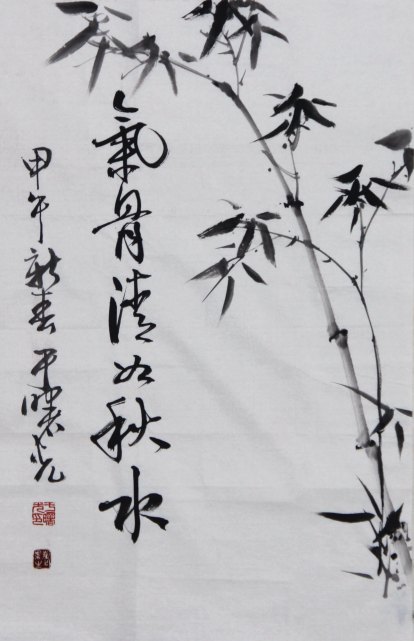 氣骨清如秋水
甲午新春